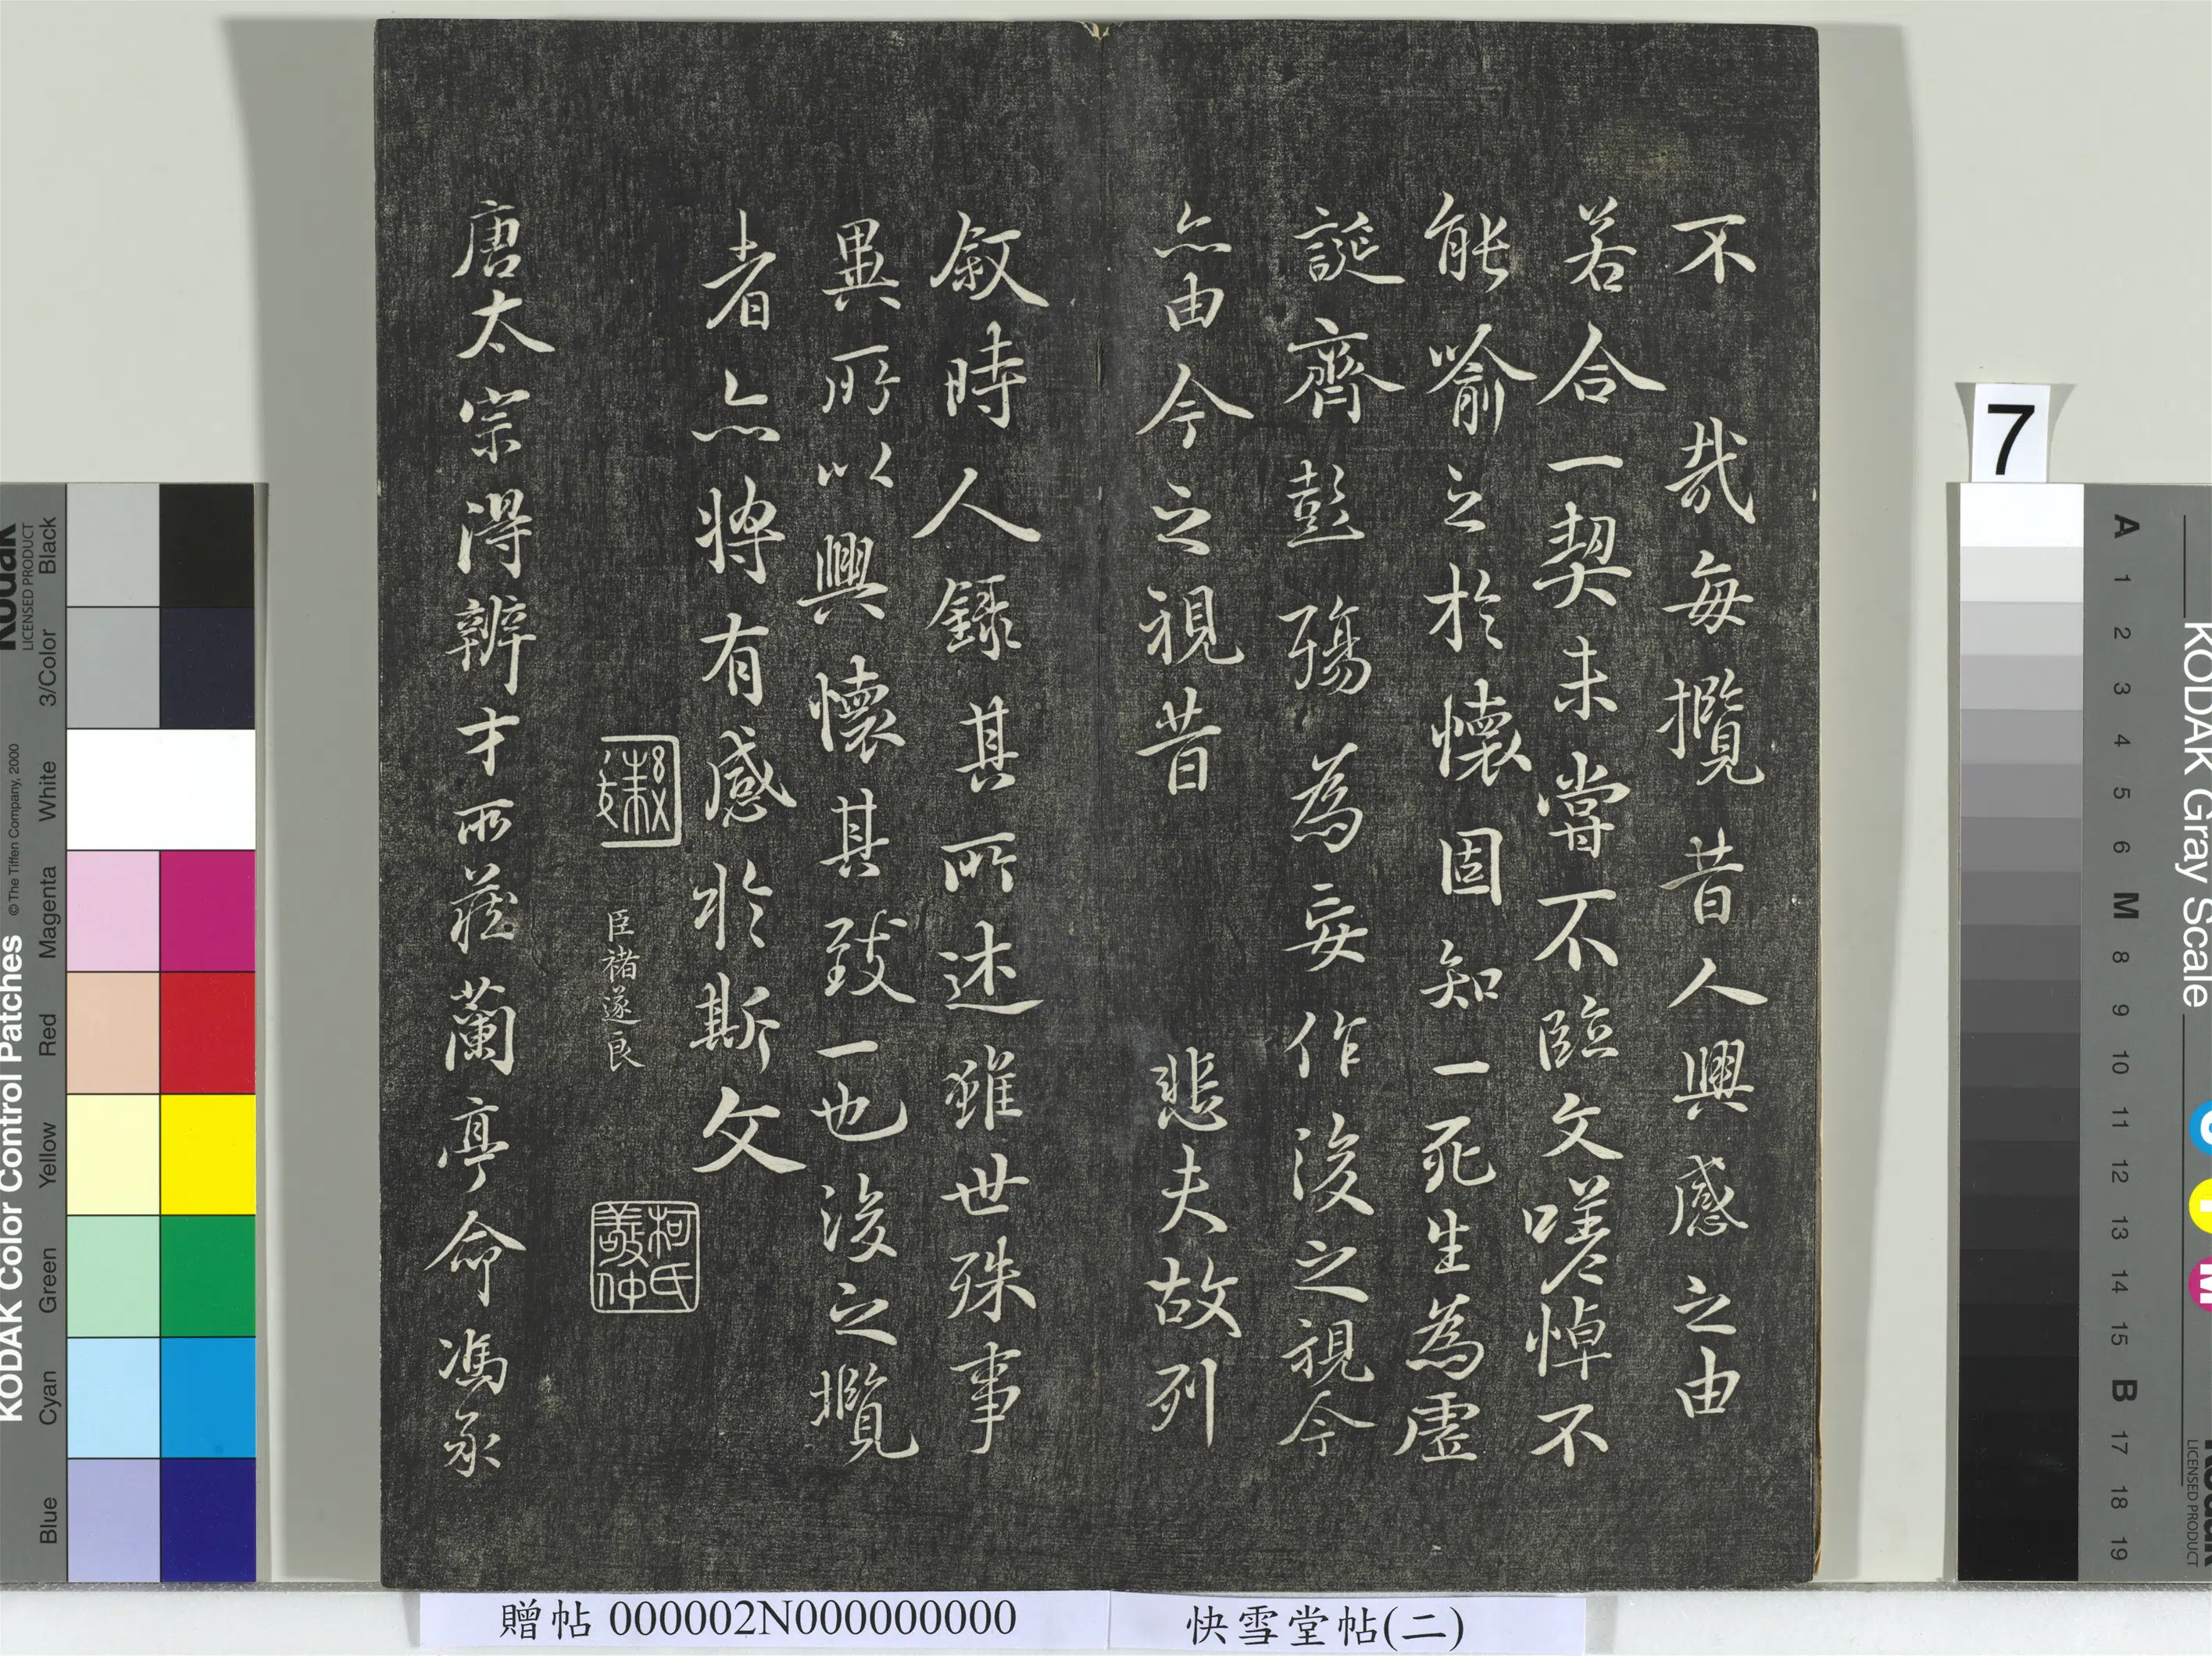 不 哉每攬昔人興感之由
若合一契未甞不臨文嗟悼不
能喻之於懷固知一死生為虛
誕齊彭殤為妄作後之視今
亦由今之視昔 悲夫故列
敘時人錄其所述雖世殊事
異所以興懷其致一也後之攬
者亦將有感於斯文
臣褚遂良
柯氏
敬仲
唐太宗得辨才所藏蘭亭命馮承
7
KODAK Color Control Patches
© The Tiffen Company, 2000
Kodak
LICENSED PRODUCT
Blue
Cyan
Green
Yellow
Red
Magenta
White
3/Color
Black
KODAK Gray Scale
A 1 2 3 4 5 6 M 8 9 10 11 12 13 14 15 B 17 18 19
C
Y
M
Kodak
LICENSED PRODUCT
贈帖 000002N000000000
快雪堂帖(二)